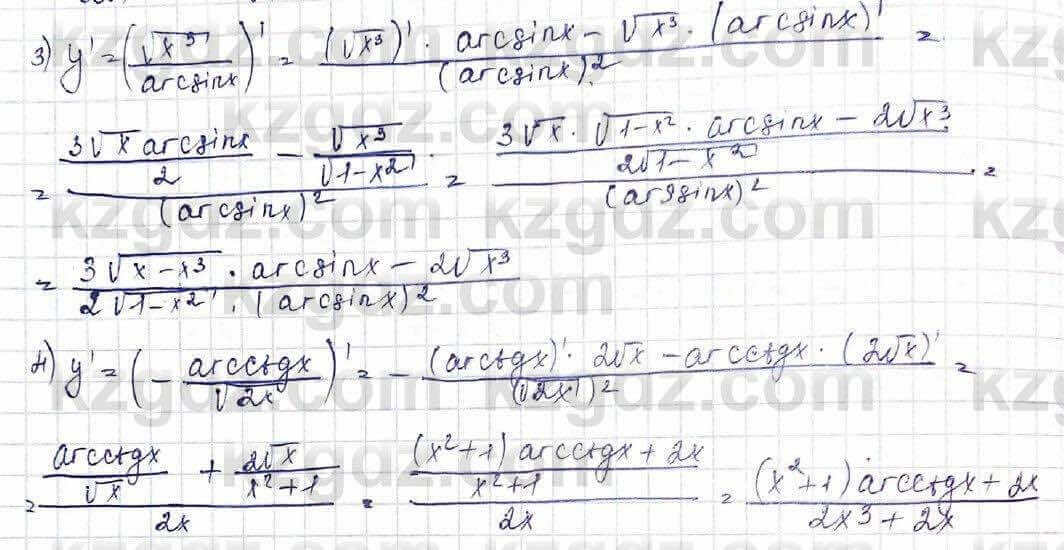 3) y' = (√x³ / arcsinx)' = ((√x³)' · arcsinx − √x³ · (arcsinx)') / (arcsinx)² =
= (3√x arcsinx / 2 − √x³ / √1−x²) / (arcsinx)² = ((3√x · √1−x² · arcsinx − 2√x³) / 2√1−x²) / (arssinx)² =
= (3√x−x³ · arcsinx − 2√x³) / (2√1−x² · (arcsinx)²)
4) y' = (− arcctgx / √2x)' = − ((arcctgx)' · 2√x − arcctgx · (2√x)') / (√2x)² =
= (arcctgx / √x + 2√x / x²+1) / 2x = (((x²+1) arcctgx + 2x) / x²+1) / 2x = ((x²+1) arcctgx + 2x) / (2x³ + 2x)
kzgdz.com